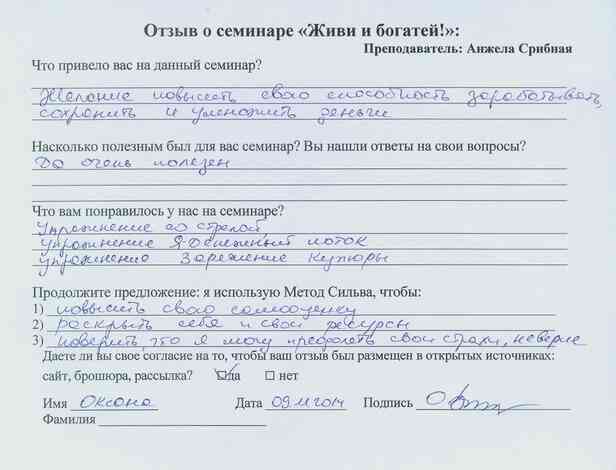 Отзыв о семинаре «Живи и богатей!»:
Преподаватель: Анжела Срибная
Что привело вас на данный семинар?
Желание повысить свою способность зарабатывать,
сохранить и умножить деньги
Насколько полезным был для вас семинар? Вы нашли ответы на свои вопросы?
Да очень полезен
Что вам понравилось у нас на семинаре?
Упражнение со стрелой
упражнение Я-Денежный поток
упражнение Заряжение купюры
Продолжите предложение: я использую Метод Сильва, чтобы:
1) повысить свою самооценку
2) раскрыть себя и свои ресурсы
3) поверить, что я могу преодолеть свои страхи, неверие
Даете ли вы свое согласие на то, чтобы ваш отзыв был размещен в открытых источниках:
сайт, брошюра, рассылка? ☑да ☐ нет
Имя Оксана Дата 09.11.2014 Подпись
Фамилия